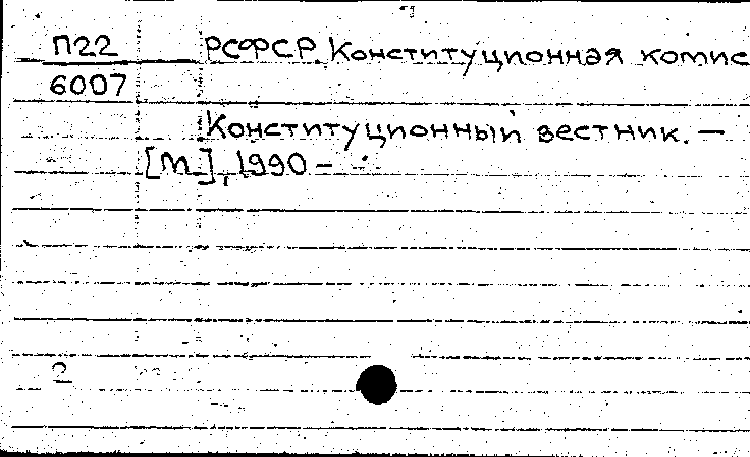 П22 РСФСР. Конституционная комис
6007
Конституционный вестник. —
[М.], 1990 –
2